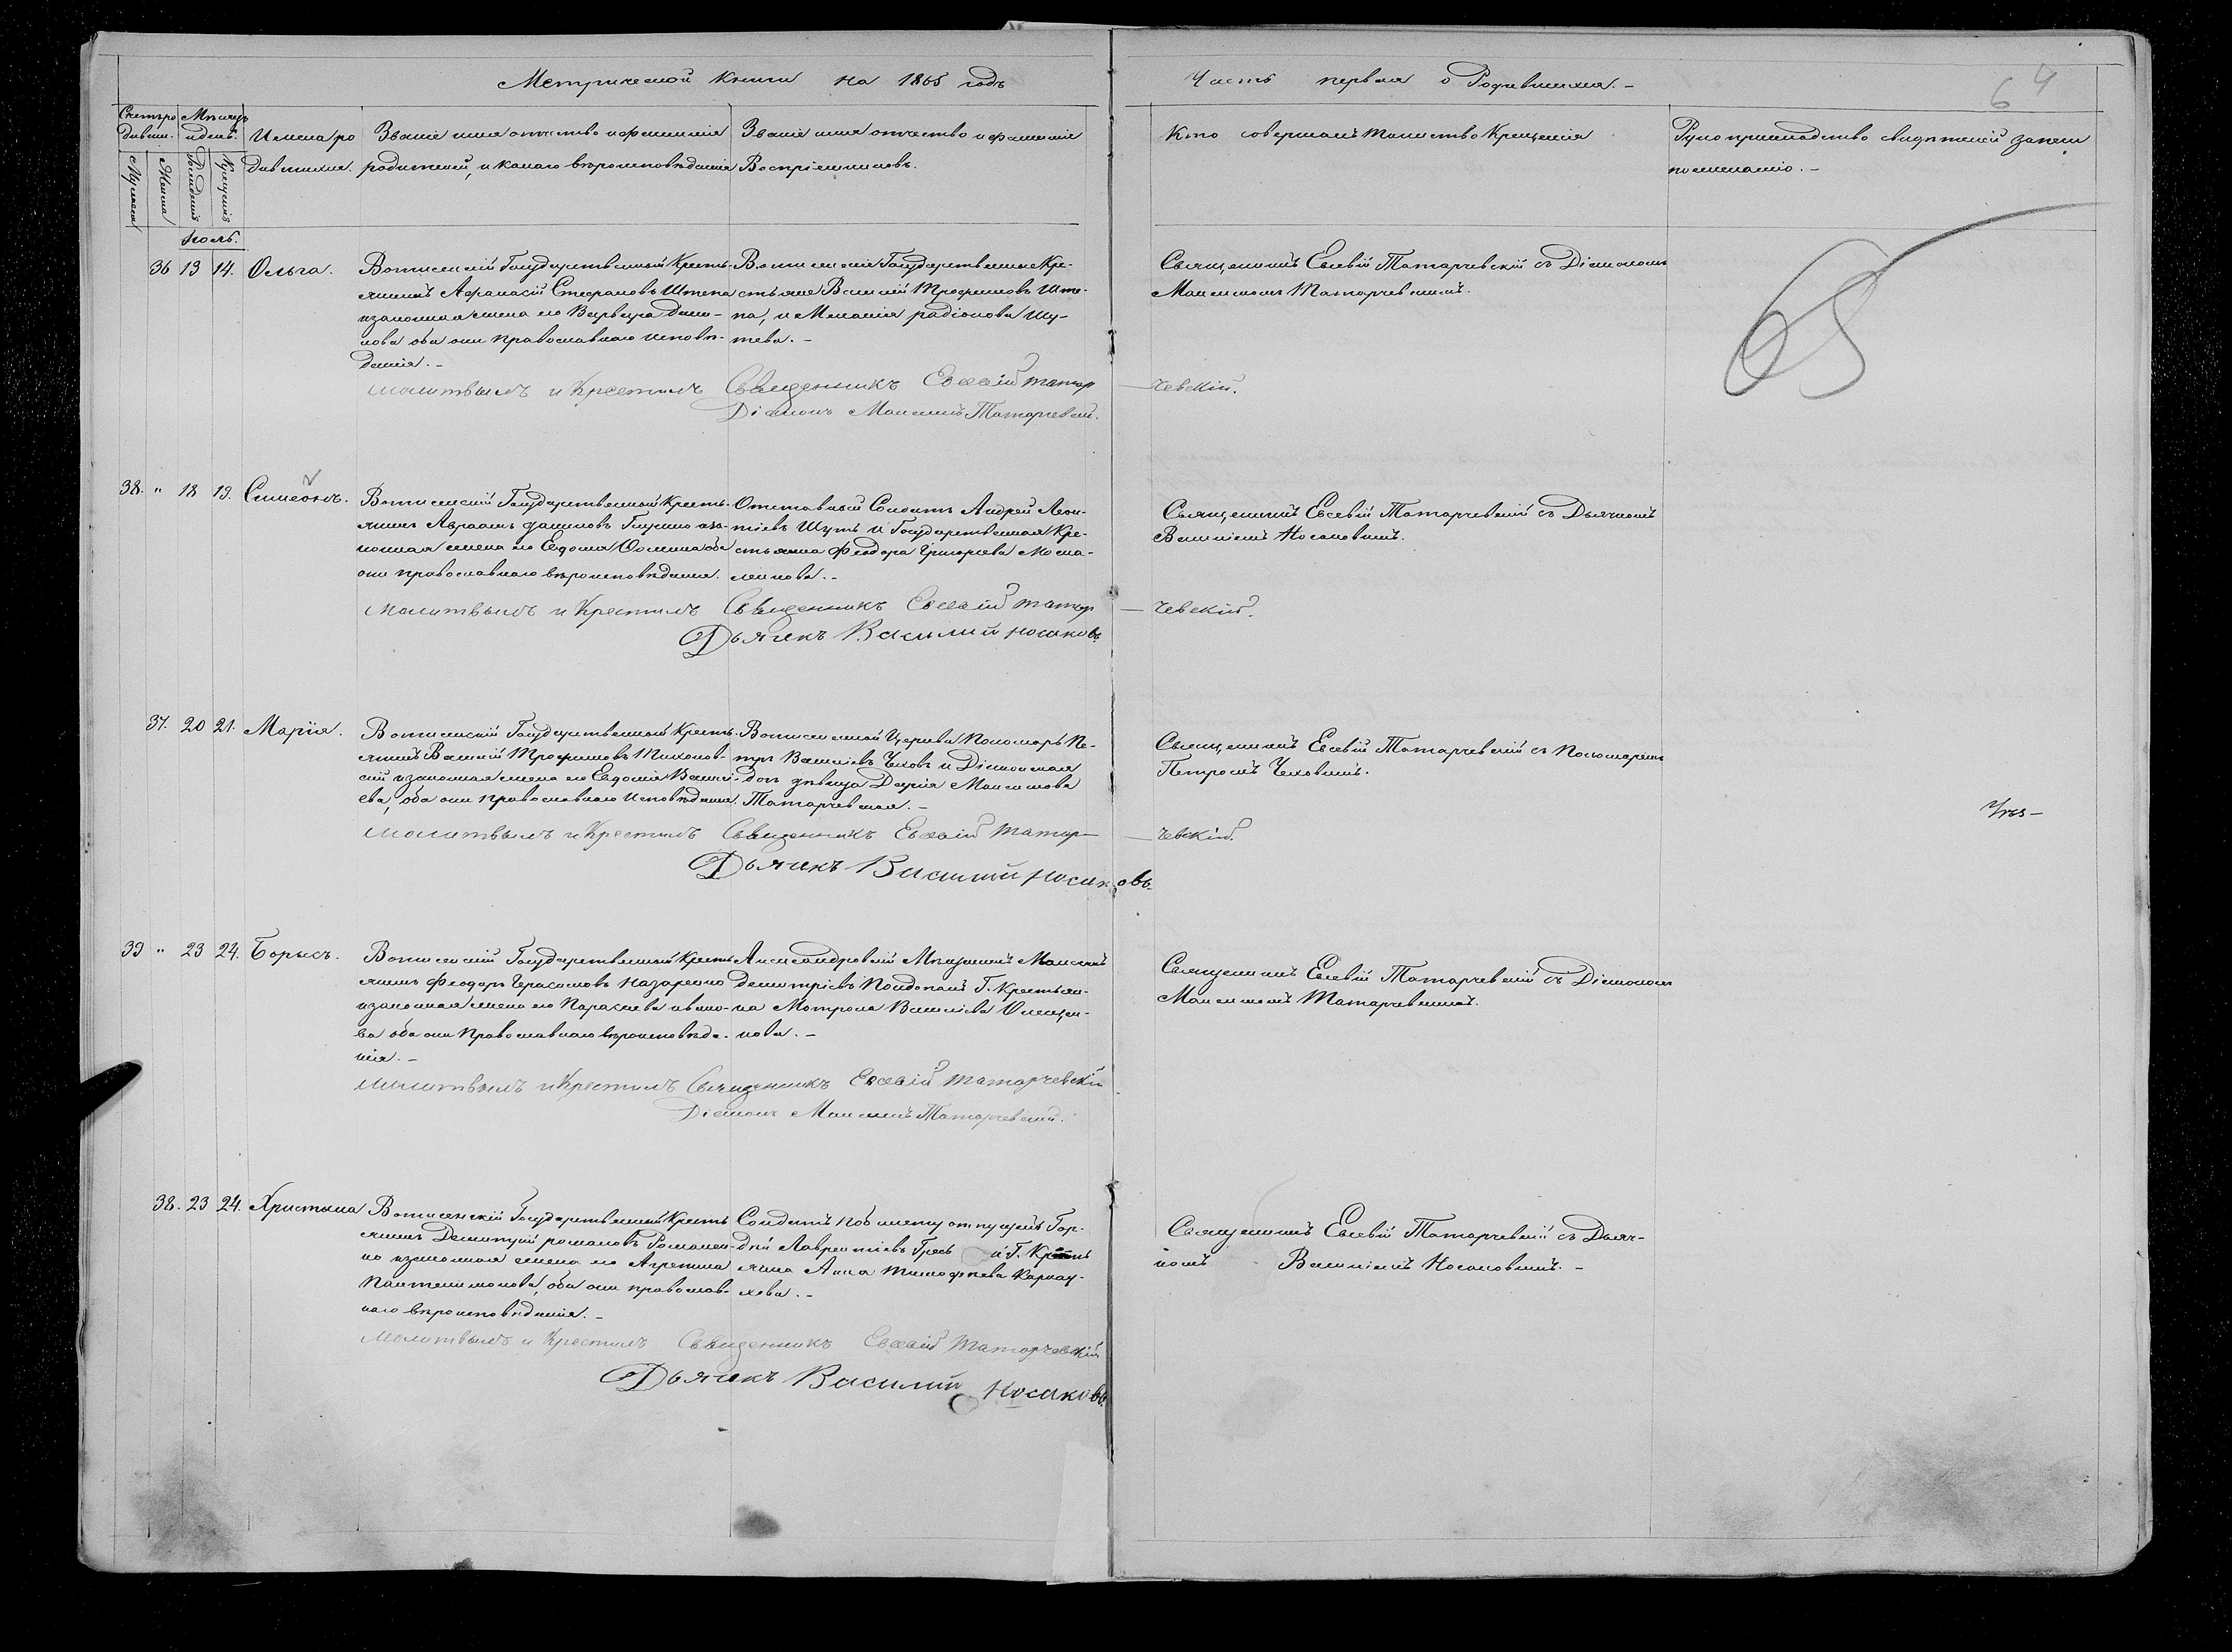 Метрической Книги на 1865 годъ
Часть первая о Родившихся. -
6 4
Счетъ ро
дивш.
Мѣсяцъ
и день.
Имена ро
дившихся.
Званіе имя отчество и фамилія
родителей, и какого вѣроисповѣданія
Званіе имя отчество и фамилія
Воспріемниковъ.
Кто совершалъ таинство Крещенія
Рукоприкладство свидѣтелей записи
по желанію. -
Мужеска
Женска
Рожденія
Крещенія
36 13 14. Ольга.
Государственный Кресть-
янинъ Афанасій Стефановъ Штепа
и законная жена его Варвара Дани-
лова оба они православнаго исповѣ-
данія. -
Государственные Кре-
стьяне Василій Трофимовъ Ште-
па, и Меланія радіонова Шу-
тева. -
Священникъ Евсевій Татарчевскій съ Діакономъ
Максимомъ Татарчевскимъ.
65
молитвылъ и Крестилъ Священникъ Евсевій Татар
чевскій.
Діаконъ Максимъ Татарчевскій.
38. " 18 19. Симеонъ.
Государственный Кресть-
янинъ Авраамъ даниловъ
законная жена его Евдокія Фомина оба
они православнаго вѣроисповѣданія.
Отставной Солдатъ Андрей Леон-
тіевъ Шуть и Государственная Кре-
стьянка Феодора Григорьева Моска-
ленкова. -
Священникъ Евсевій Татарчевскій съ Дьячкомъ
Василіемъ Носаковымъ.
Молитвылъ и Крестилъ Священникъ Евсевій Татар
чевскій.
Дьячекъ Василий Носаковъ.
37. 20 21. Марія.
Государственный Кресть-
янинъ Василій Трофимовъ Тихонов-
скій и законная жена его Евдокія Василі-
ева, оба они православнаго исповѣданія.
Церкви Пономарь Пе-
тръ Василіевъ Чеховъ и Діаконская
дочь дѣвица Дарія Максимова
Татарчевская. -
Священникъ Евсевій Татарчевскій съ Пономаремъ
Петромъ Чеховымъ.
Молитвылъ и Крестилъ Священникъ Евсевій Татар
чевскій.
Дьячекъ Василий Носаковъ.
39 " 23 24. Борисъ.
Государственный Кресть
янинъ Феодоръ Герасимовъ Назаренко
и законная жена его Параскева ивано-
ва оба они Православнаго вѣроисповѣда-
нія. -
Александровскій Мѣщанинъ Максимъ
Димитріевъ Г. Крестьян-
ка Мотрона Василіева
нова. -
Священникъ Евсевій Татарчевскій съ Діакономъ
Максимомъ Татарчевскимъ.
Молитвылъ и Крестилъ Священникъ Евсевій Татарчевскій
Діаконъ Максимъ Татарчевскій.
38. 23 24. Христина
Государственный Кресть
янинъ Димитрій романовъ Романен-
ко и законная жена его Агрепина
Пантелимонова, оба они православ-
наго вѣроисповѣданія. -
Солдатъ отпуску Гор-
дѣй Лаврентіевъ и Г. Кресть
янка Анна Тимофѣева Карнау-
хова. -
Священникъ Евсевій Татарчевскій съ Дьяч-
комъ Василіемъ Носаковымъ. -
Молитвылъ и Крестилъ Священникъ Евсевій Татарчевскій
Дьячекъ Василий Носаковъ.